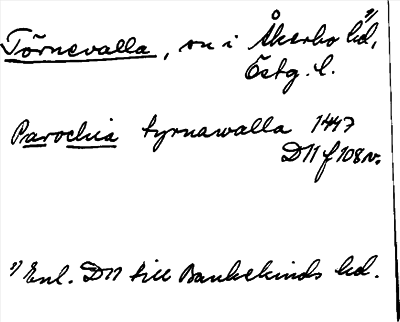 Törnevalla, sn i Åkerbo hd, ¹)
Östg. l.
Parochia tyrnawalla 1447
D11 f 108 v.
¹) Enl. D11 till Bankekinds hd.